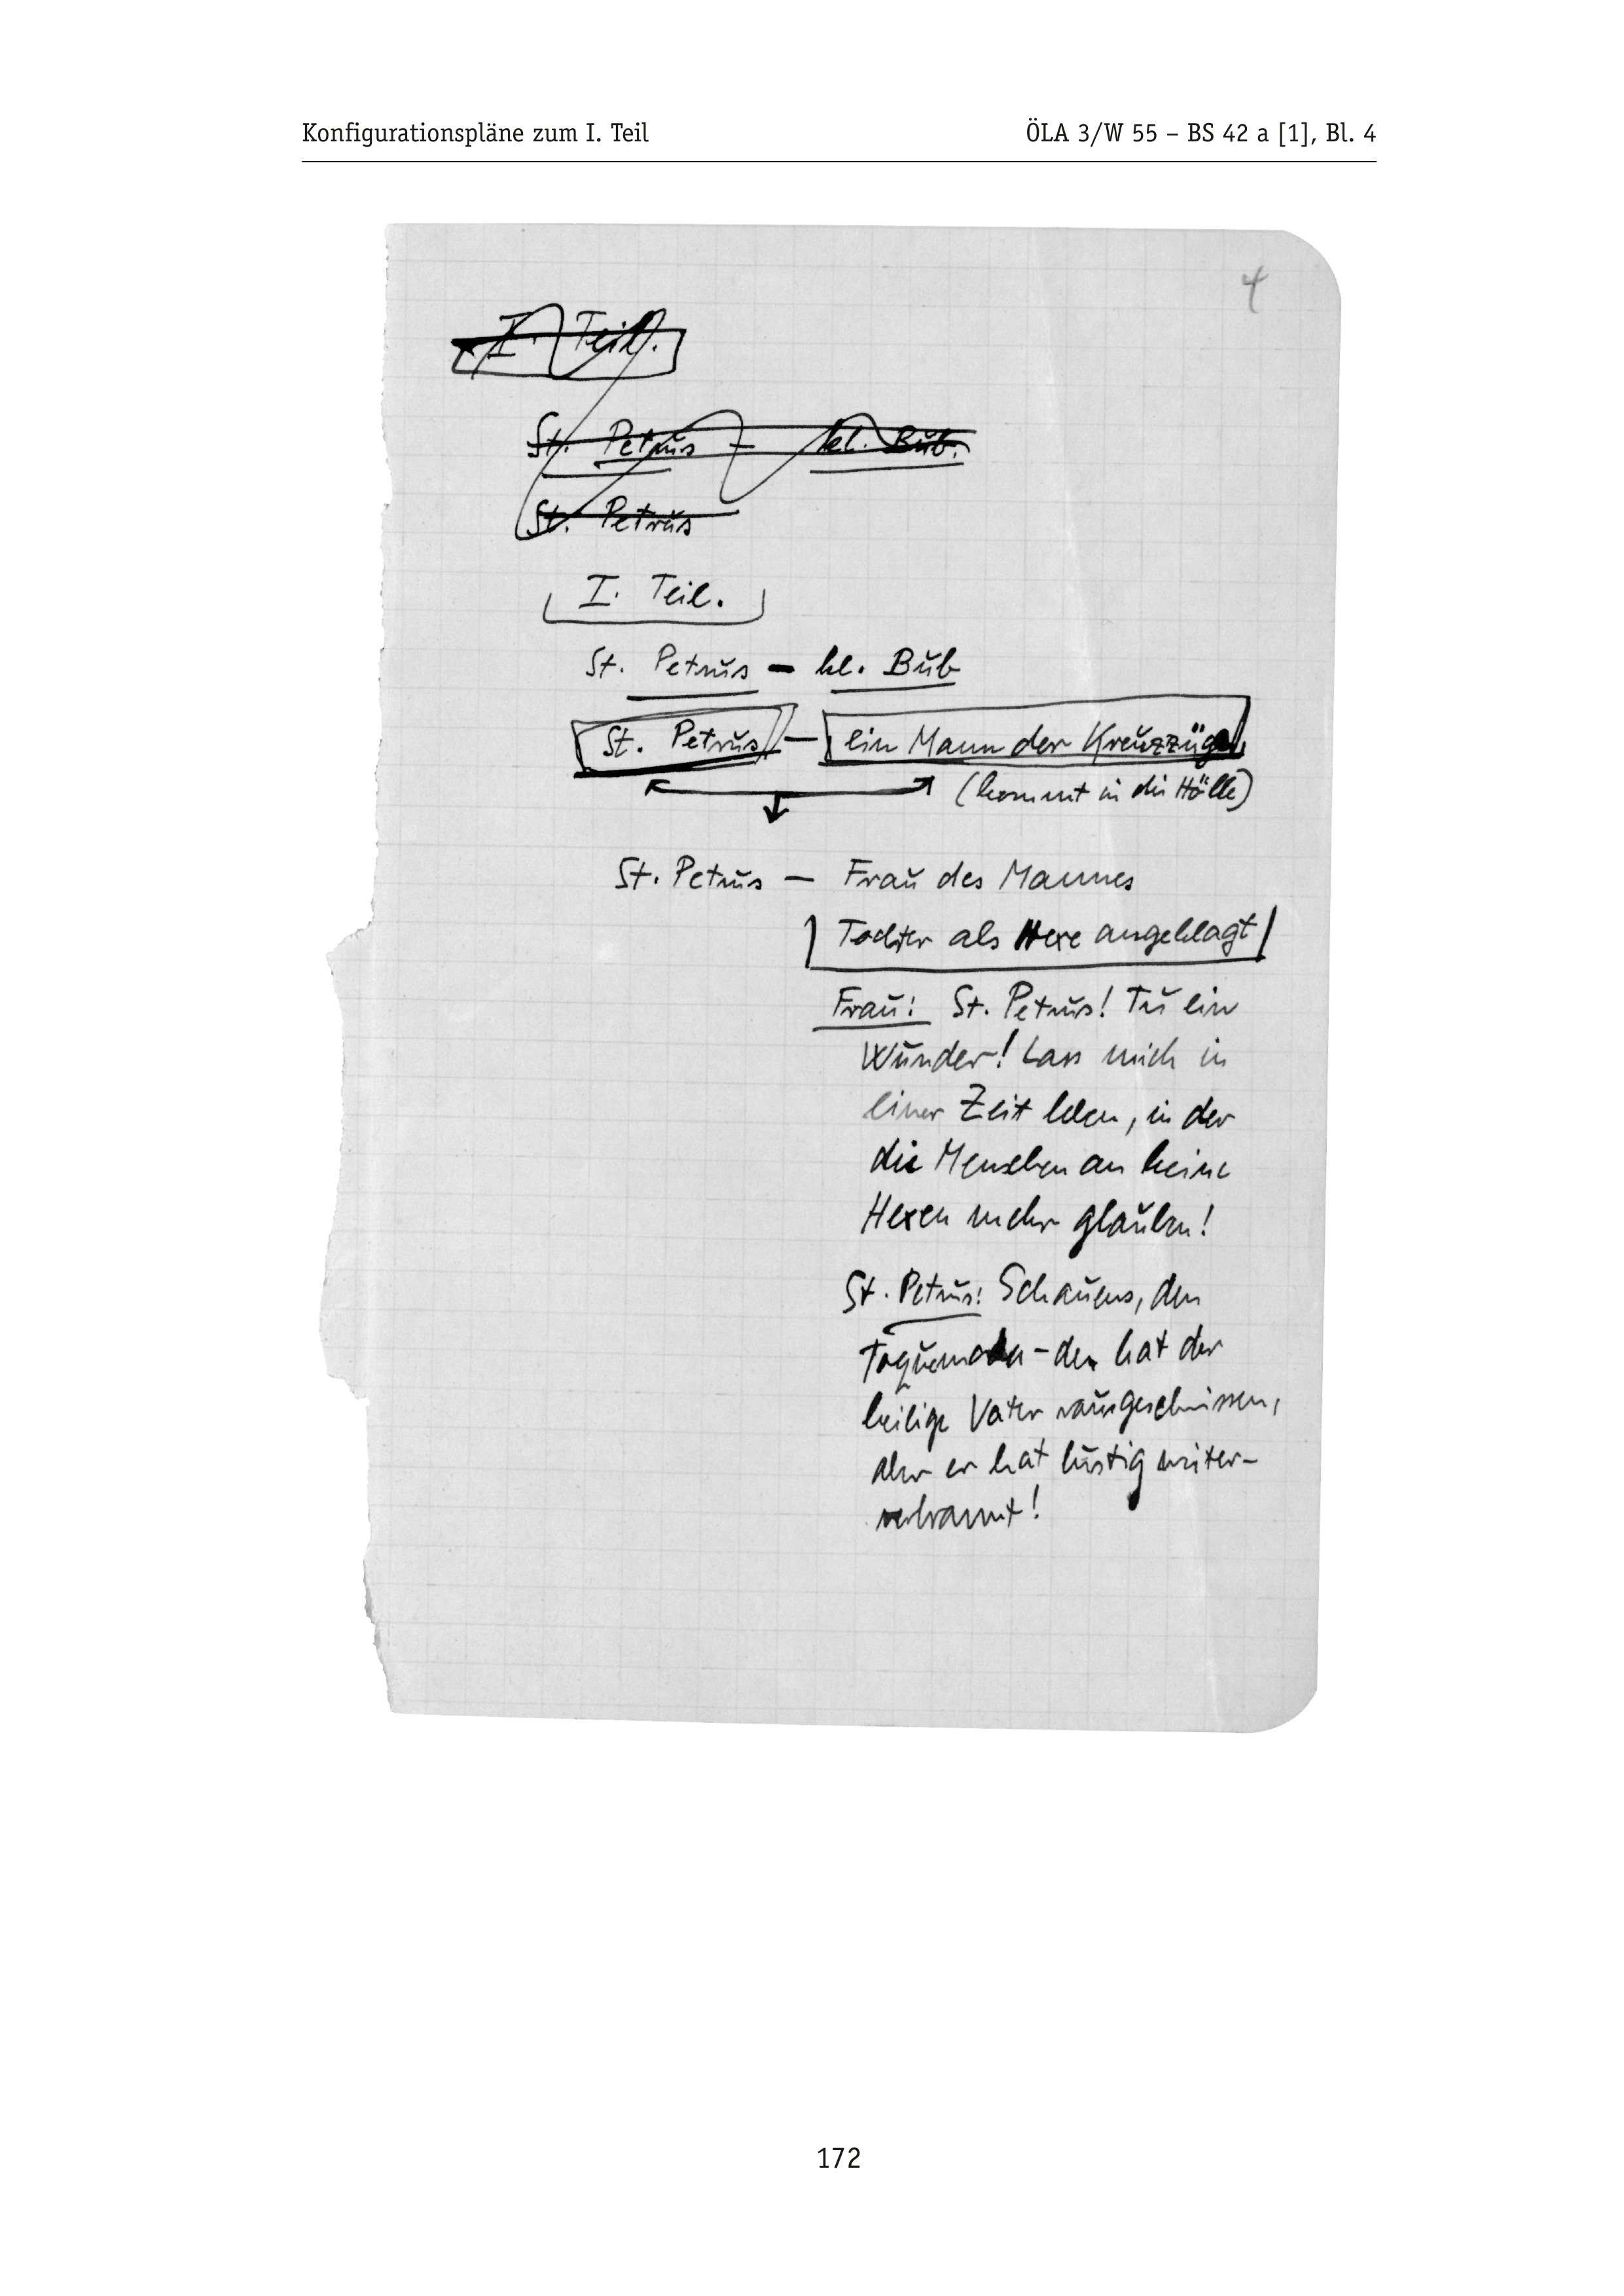 Konfigurationspläne zum I. Teil ÖLA 3/W 55 – BS 42 a [1], Bl. 4
4
I. Teil.
St. Petrus – kl. Bub.
St. Petrus
I. Teil.
St. Petrus – kl. Bub
St. Petrus – ein Mann der Kreuzzüge
(kommt in die Hölle)
St. Petrus – Frau des Mannes
Tochter als Hexe angeklagt
Frau: St. Petrus! Tu ein
Wunder! Lass mich in
einer Zeit leben, in der
die Menschen an keine
Hexen mehr glauben!
St. Petrus: Schauens, den
Toquemada – den hat der
heilige Vater rausgeschmissen,
aber er hat lustig weiter-
verbrannt!
172